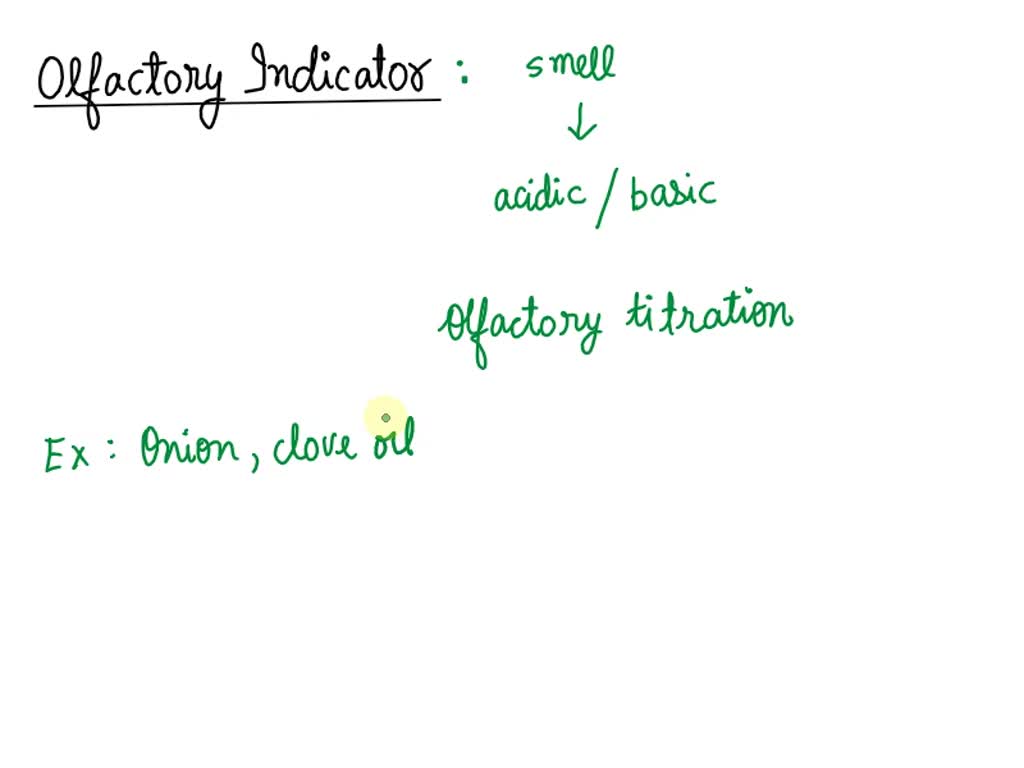 Olfactory Indicator : smell
↓
acidic / basic
Olfactory titration
Ex : Onion, clove oil